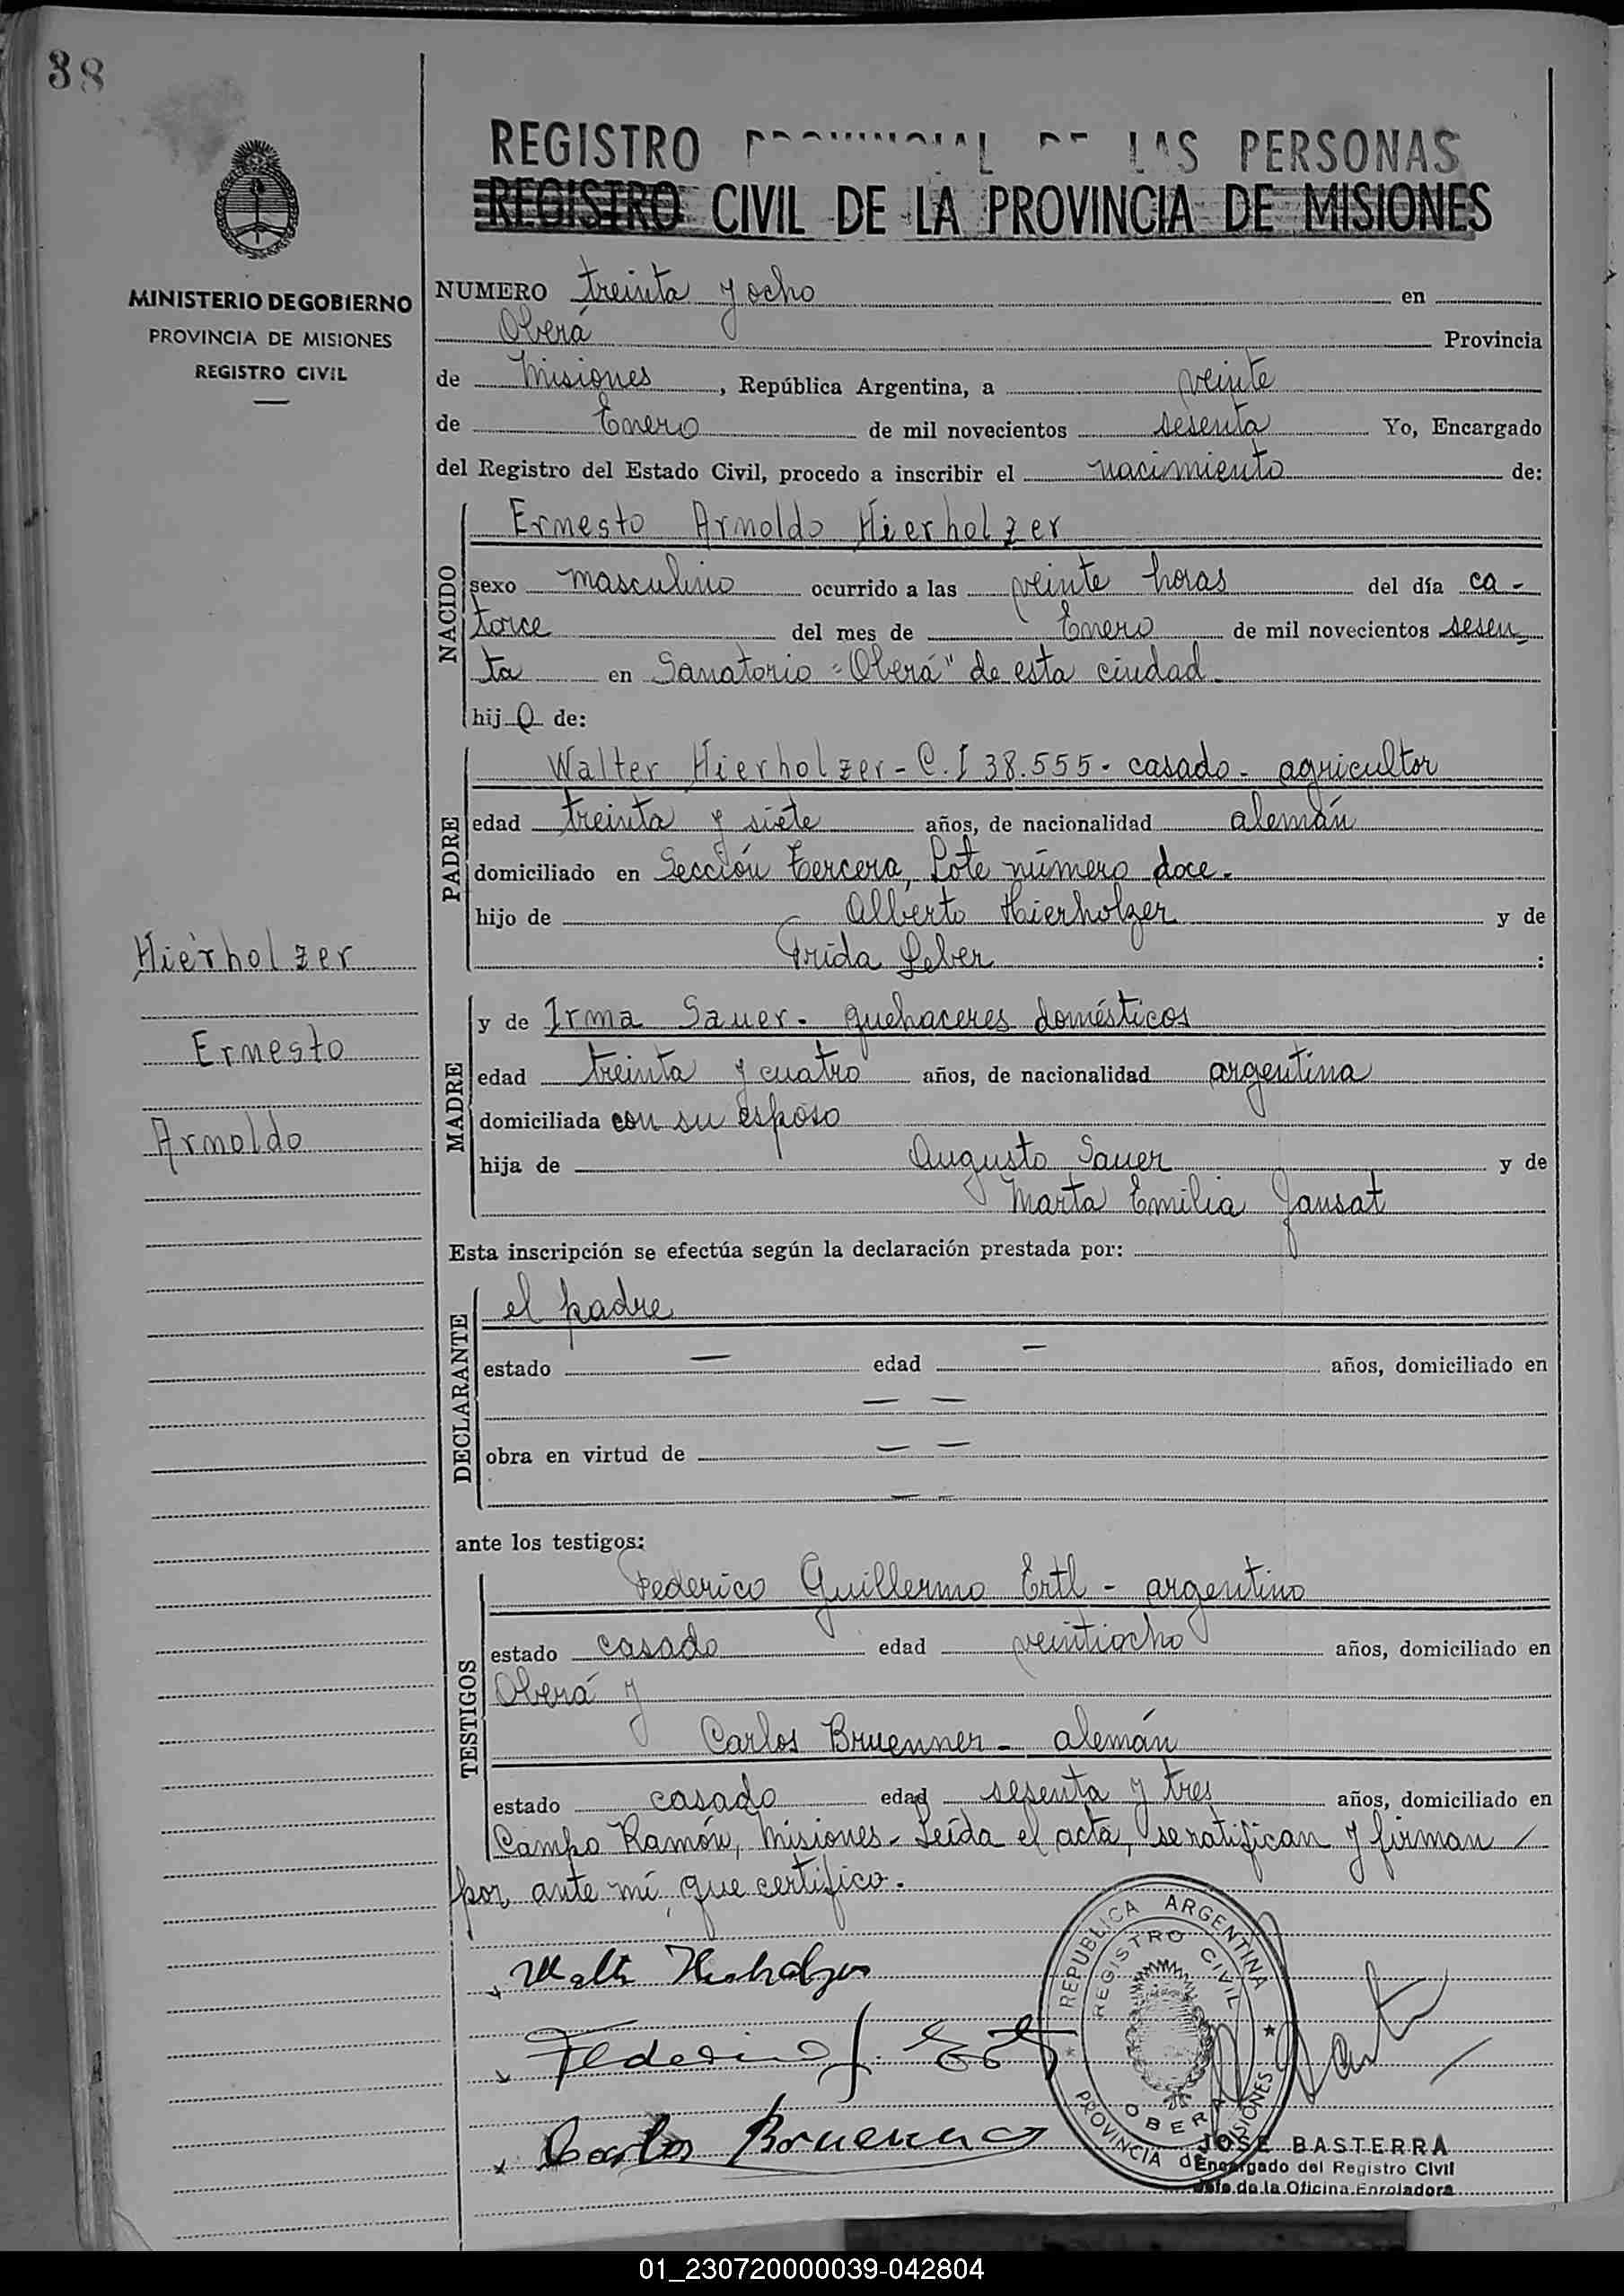 38
REGISTRO PROVINCIAL DE LAS PERSONAS
REGISTRO CIVIL DE LA PROVINCIA DE MISIONES
MINISTERIO DE GOBIERNO
PROVINCIA DE MISIONES
REGISTRO CIVIL
NUMERO treinta y ocho en
Oberá Provincia
de Misiones, República Argentina, a veinte
de Enero de mil novecientos sesenta Yo, Encargado
del Registro del Estado Civil, procedo a inscribir el nacimiento de:
NACIDO
Ernesto Arnoldo Hierholzer
sexo masculino ocurrido a las veinte horas del día ca-
torce del mes de Enero de mil novecientos sesen-
ta en Sanatorio "Oberá" de esta ciudad.
hijo de:
PADRE
Walter Hierholzer - C.I 38.555 - casado - agricultor
edad treinta y siete años, de nacionalidad alemán
domiciliado en Sección Tercera, Lote número doce.
hijo de Alberto Hierholzer y de
Frida Leber :
Hierholzer
Ernesto
Arnoldo
MADRE
y de Irma Sauer - quehaceres domésticos
edad treinta y cuatro años, de nacionalidad argentina
domiciliada con su esposo
hija de Augusto Sauer y de
Marta Emilia Jansat
Esta inscripción se efectúa según la declaración prestada por:
DECLARANTE
el padre
estado — edad — años, domiciliado en
— —
obra en virtud de — —
— —
ante los testigos:
TESTIGOS
Federico Guillermo Ertl - argentino
estado casado edad veintiocho años, domiciliado en
Oberá y
Carlos Bruenner - alemán
estado casado edad sesenta y tres años, domiciliado en
Campo Ramón, Misiones - Leída el acta, se ratifican y firman /
por ante mí, que certifico.
Walter Hierholzer
Federico G. Ertl
Carlos Bruenner
REPUBLICA ARGENTINA
REGISTRO CIVIL
OBERA
PROVINCIA DE MISIONES
JOSE BASTERRA
Encargado del Registro Civil
Jefe de la Oficina Enroladora
01_230720000039-042804